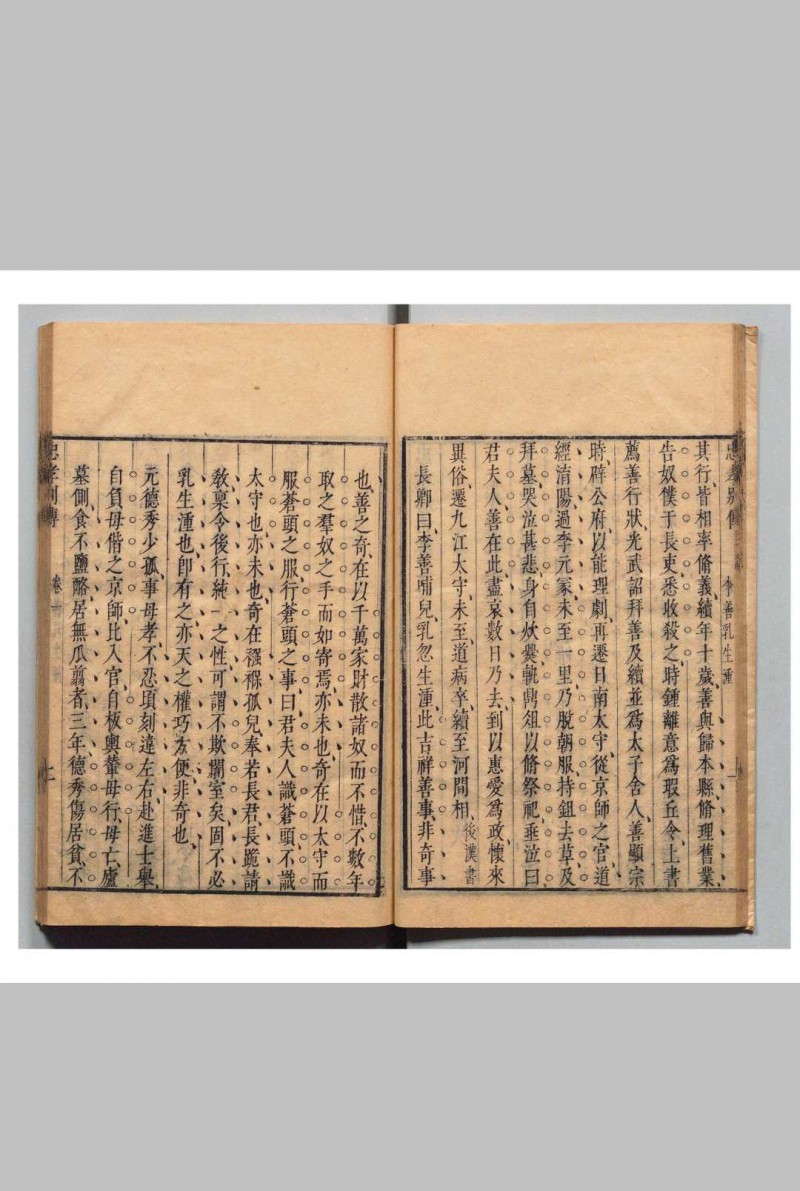 忠孝別傳
李善乳生湩
其行、皆相率脩義、續年十歲、善與歸本縣、脩理舊業、
告奴僕于長吏、悉收殺之、時鍾離意爲瑕丘令、上書
薦善行狀、光武詔拜善及續並爲太子舍人、善顯宗
時、辟公府、以能理劇、再遷日南太守、從京師之官、道
經淯陽、過李元冢、未至一里、乃脫朝服、持鉏去草、及
拜墓、哭泣甚悲、身自炊爨、執鼎俎以脩祭祀、垂泣曰、
君夫人、善在此、盡哀數日乃去、到以惠愛爲政、懷來
異俗、遷九江太守、未至、道病卒、續至河間相、後漢書
長卿曰、李善哺兒、乳忽生湩、此吉祥善事、非奇事
也、善之奇、在以千萬家財散諸奴而不惜、不數年
取之羣奴之手而如寄焉、亦未也、奇在以太守而
服蒼頭之服、行蒼頭之事、曰君夫人識蒼頭不識
太守也、亦未也、奇在襁褓孤兒、奉若長君、長跪請
敎、稟令後行、純一之性、可謂不欺闇室矣、固不必
乳生湩也、卽有之、亦天之權巧方便、非奇也、
元德秀少孤、事母孝、不忍頃刻違左右、赴進士舉、
自負母偕之京師、比入官、自板輿輦母行、母亡、廬
墓側、食不鹽酪、居無瓜翦者、三年、德秀傷居貧、不
忠孝別傳
卷一